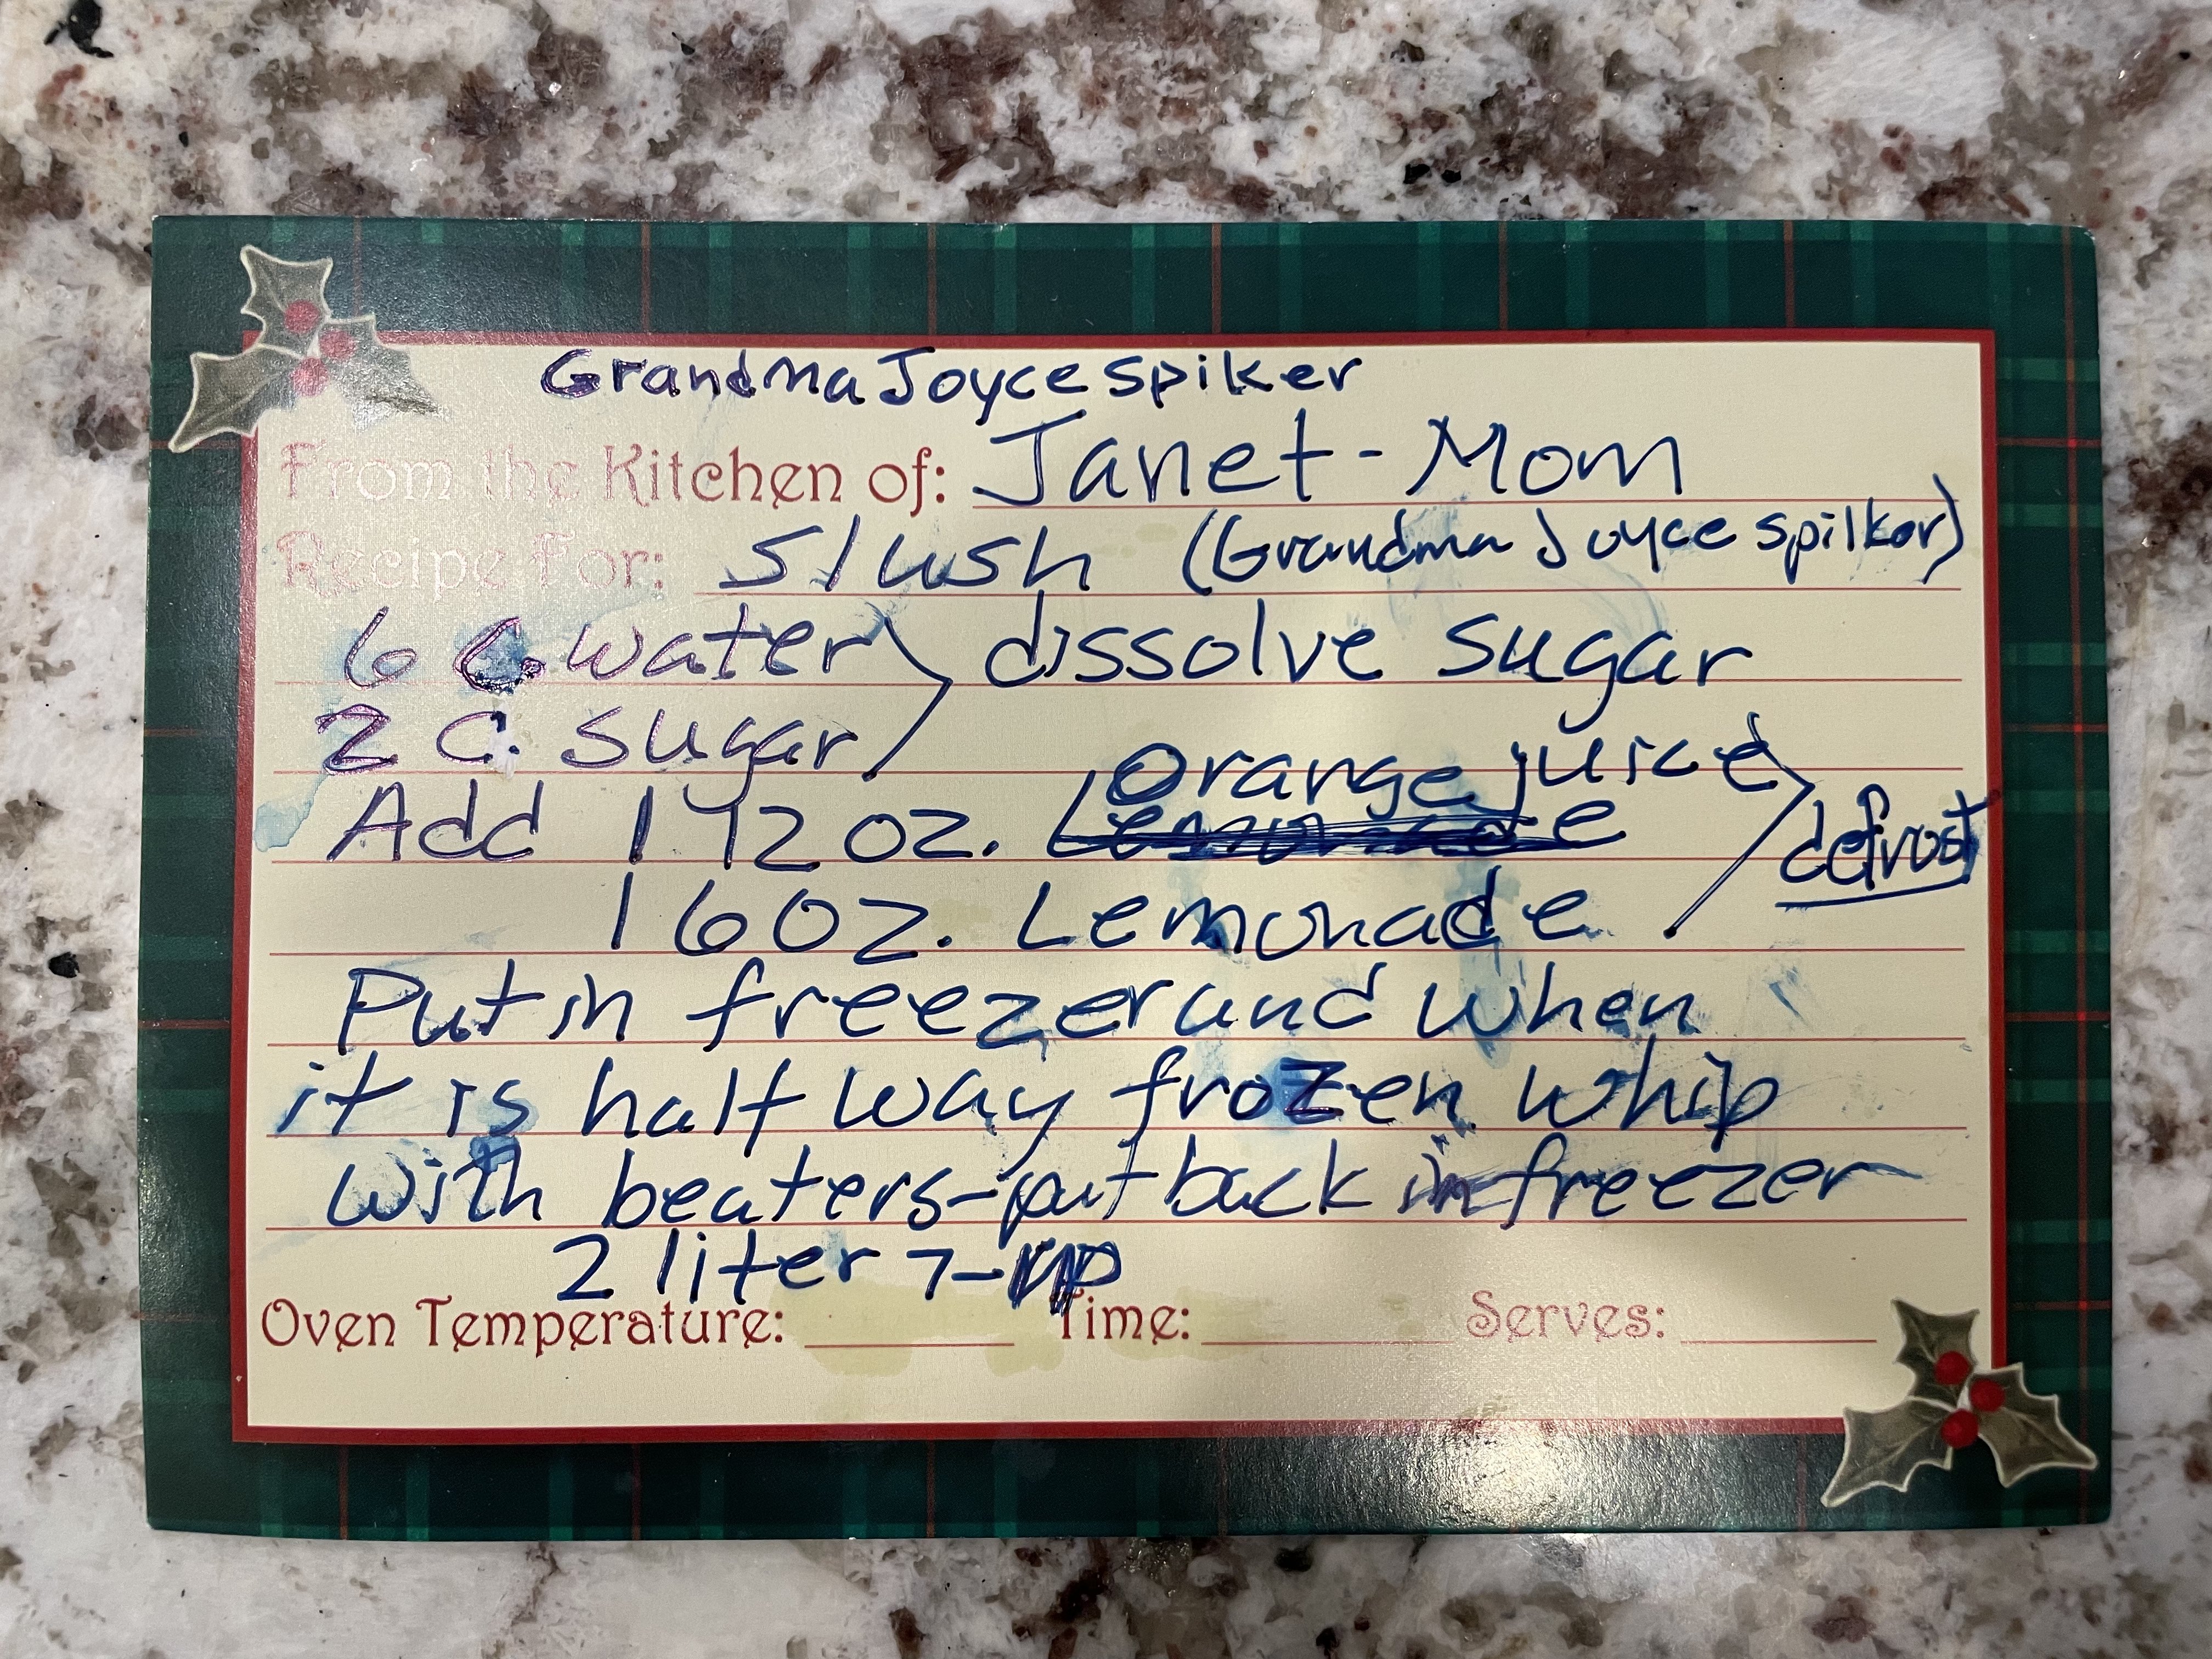 Grandma Joyce Spiker
From the Kitchen of: Janet - Mom
Recipe For: Slush (Grandma Joyce Spilker)
6 C. water dissolve sugar
2 C. sugar
Orange juice
Add 1 12 oz. Lemonade defrost
1 6 oz. Lemonade
Put in freezer and when
it is half way frozen whip
with beaters - put back in freezer
2 liter 7-up
Oven Temperature: Time: Serves: